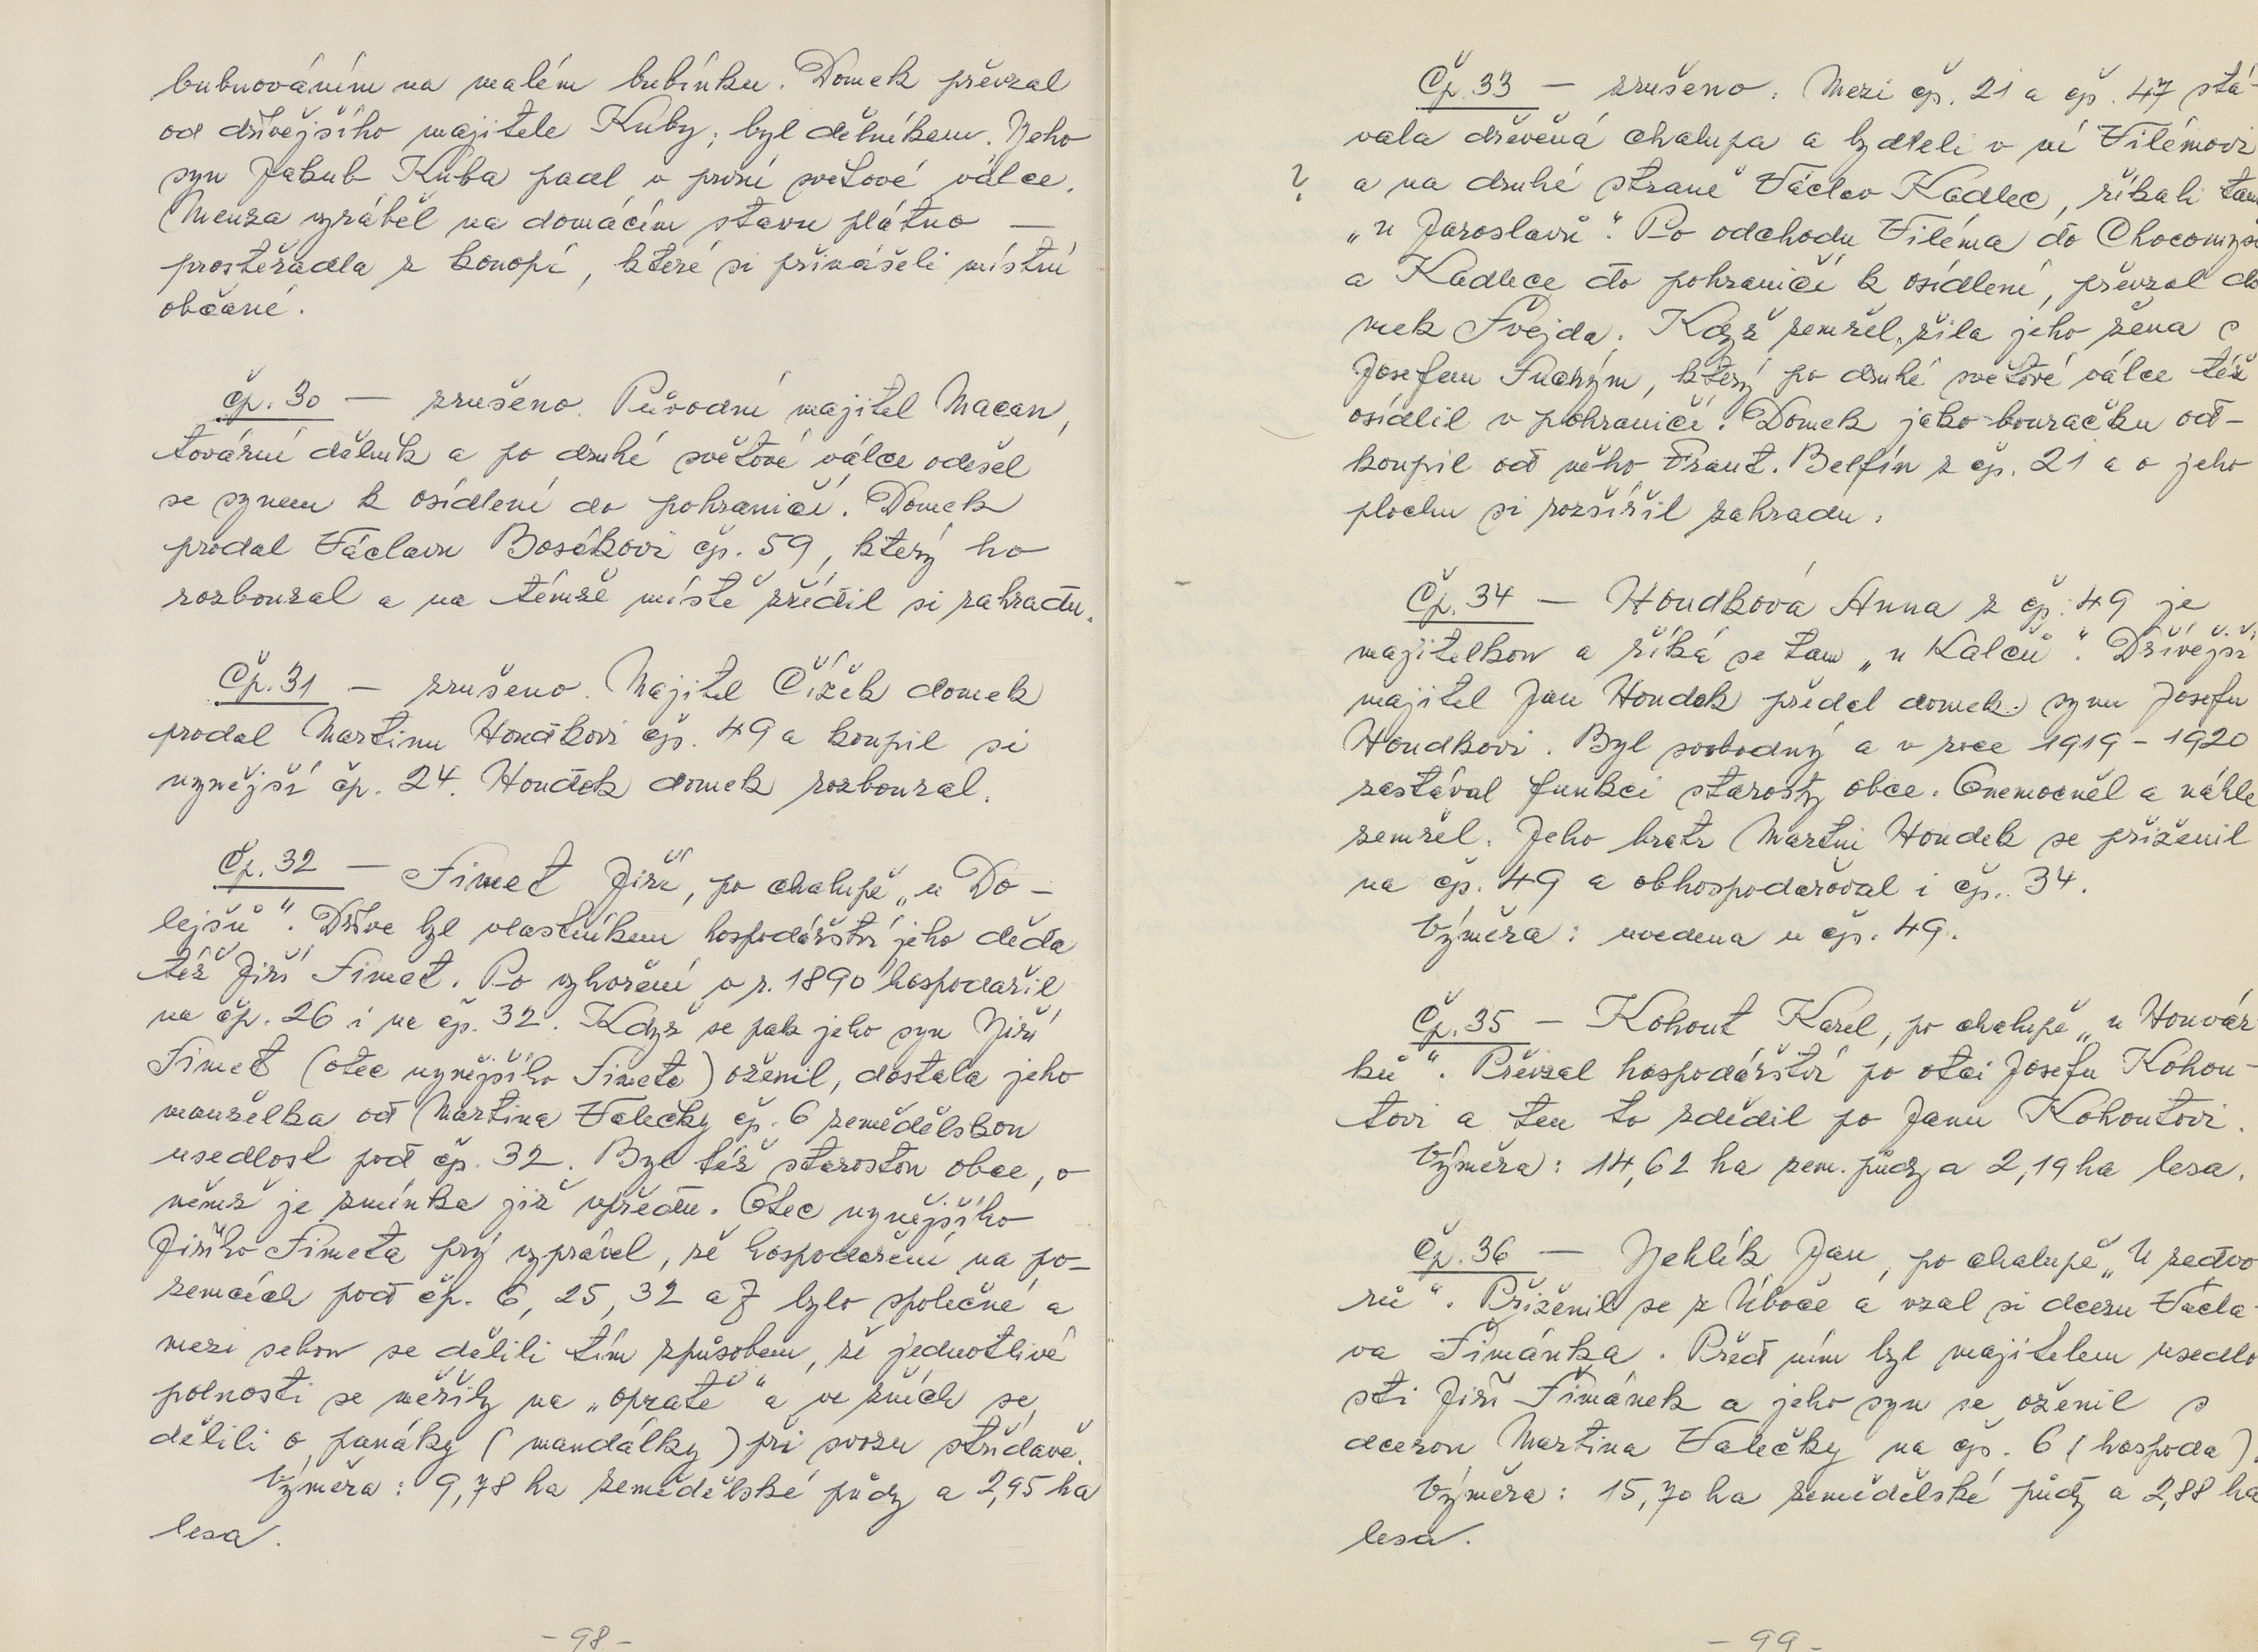 bubnováním na malém bubínku. Domek převzal
od dřívějšího majitele Kuby; byl dělníkem. Jeho
syn Jakub Kuba padl v první světové válce.
Menza vyráběl na domácím stavu plátno —
prostěradla z konopí, které si přinášeli místní
občané.
Čp. 30 — zrušeno. Původní majitel Macan,
tovární dělník a po druhé světové válce odešel
se synem k osídlení do pohraničí. Domek
prodal Václavu Bosákovi čp. 59, který ho
rozboural a na témže místě zřídil si zahradu.
Čp. 31 — zrušeno. Majitel Čížek domek
prodal Martinu Houdkovi čp. 49 a koupil si
nynější čp. 24. Houdek domek rozboural.
Čp. 32 — Šimet Jiří, po chalupě „u Do-
lejšů“. Dříve byl vlastníkem hospodářství jeho děda
též Jiří Šimet. Po vyhoření v r. 1890 hospodařil
na čp. 26 i na čp. 32. Když se pak jeho syn Jiří
Šimet (otec nynějšího Šimeta) oženil, dostala jeho
manželka od Martina Valečky čp. 6 zemědělskou
usedlost pod čp. 32. Byl též starostou obce, o
němž je zmínka již vpředu. Otec nynějšího
Jiřího Šimeta prý vyprávěl, že hospodaření na po-
zemcích pod čp. 6, 25, 32 a 7 bylo společné a
mezi sebou se dělili tím způsobem, že jednotlivé
polnosti se měřily na „opratě“ a ve žních se
dělili o panáky (mandálky) při svozu střídavě.
Výměra: 9,78 ha zemědělské půdy a 2,95 ha
lesa.
- 98 -
Čp. 33 — zrušeno. Mezi čp. 21 a čp. 47 stá-
vala dřevěná chalupa a bydleli v ní Vilémovi
? a na druhé straně Václav Kadlec, říkali tam
„u Jaroslavů“. Po odchodu Viléma do Chocomyšl
a Kadlece do pohraničí k osídlení, převzal do
mek Švejda. Když zemřel, žila jeho žena s
Josefem Suchým, který po druhé světové válce též
osídlil v pohraničí. Domek jako bouračku od-
koupil od něho Frant. Belfín z čp. 21 a o jeho
plochu si rozšířil zahradu.
Čp. 34 — Houdková Anna z čp. 49 je
majitelkou a říká se tam „u Kalců“. Dřívější
majitel Jan Houdek předal domek synu Josefu
Houdkovi. Byl svobodný a v roce 1919 - 1920
zastával funkci starosty obce. Onemocněl a náhle
zemřel. Jeho bratr Martin Houdek se přiženil
na čp. 49 a obhospodařoval i čp. 34.
Výměra: uvedena u čp. 49.
Čp. 35 — Kohout Karel, po chalupě „u Honvár
ků“. Převzal hospodářství po otci Josefu Kohou-
tovi a ten to zdědil po Janu Kohoutovi.
Výměra: 14,62 ha zem. půdy a 2,19 ha lesa.
Čp. 36 — Jehlík Jan, po chalupě „U sedvo
rů“. Přiženil se z Úboče a vzal si dceru Václa-
va Šimánka. Před ním byl majitelem usedlo
sti Jiří Šimánek a jeho syn se oženil s
dcerou Martina Valečky na čp. 6 (hospoda).
Výměra: 15,70 ha zemědělské půdy a 2,88 ha
lesa.
- 99 -